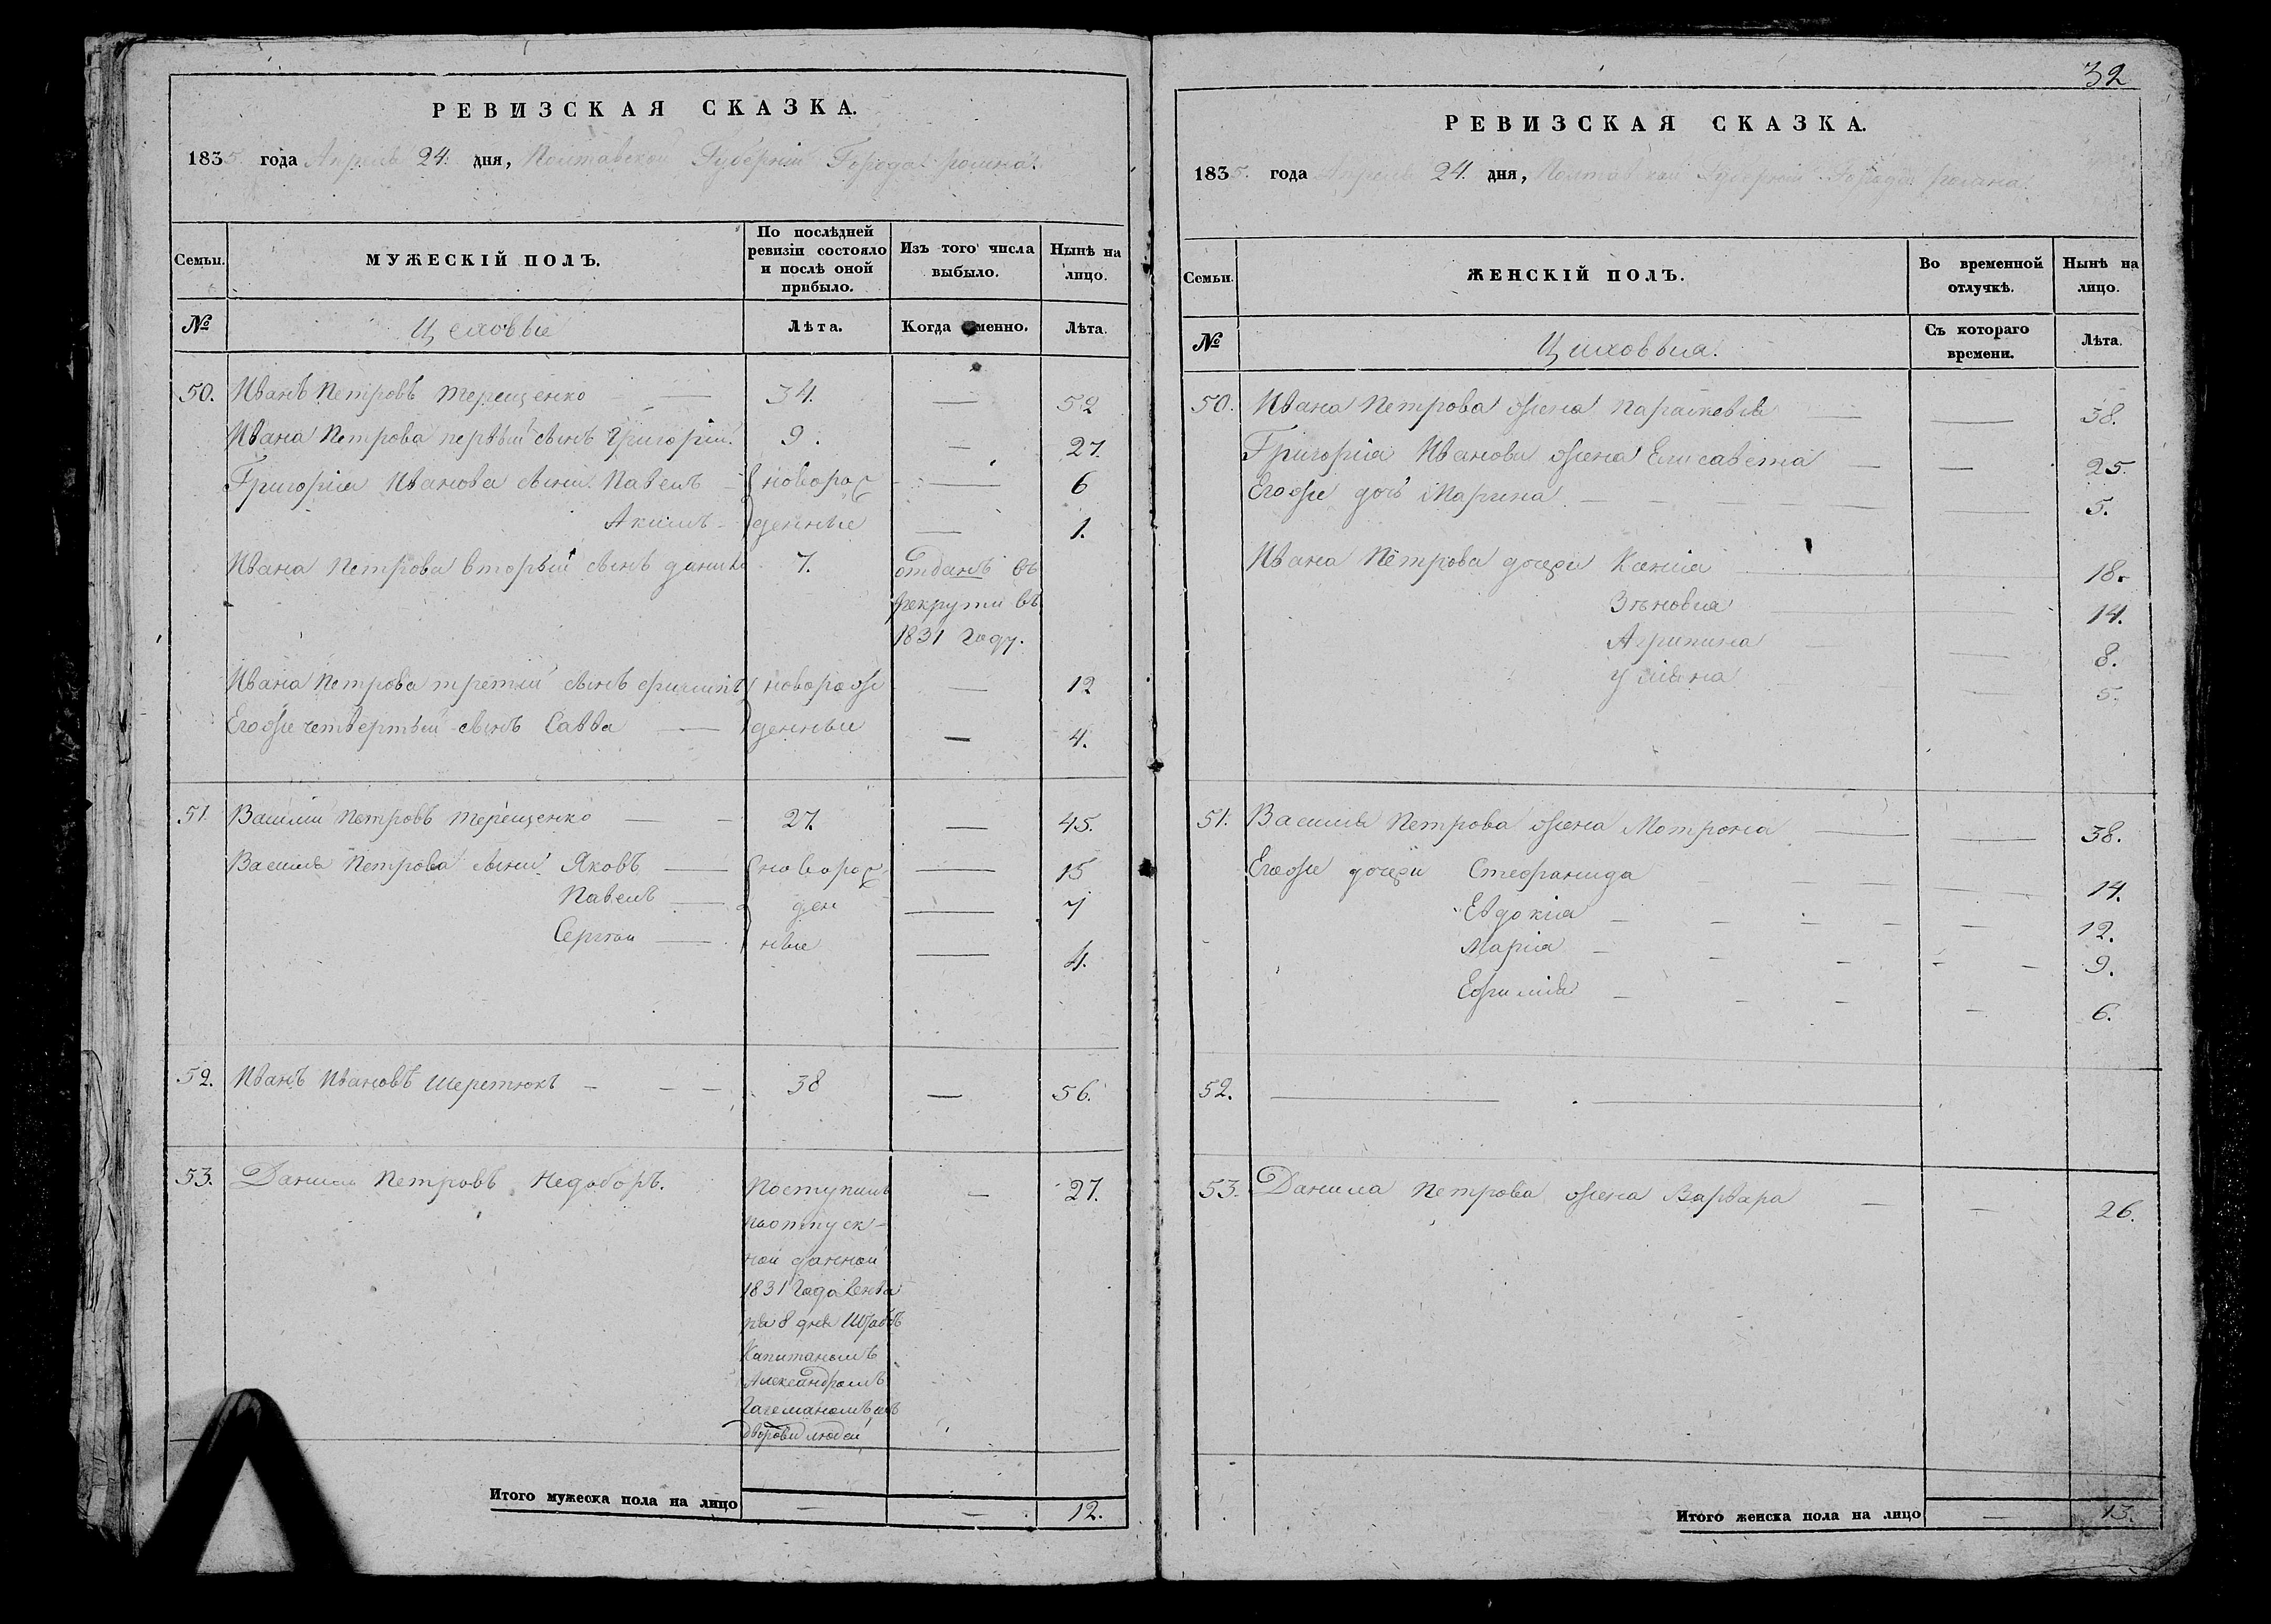 РЕВИЗСКАЯ СКАЗКА.
1835. года Апреля 24. дня, Полтавской Губерніи Города Ромна.
Семьи.
МУЖЕСКІЙ ПОЛЪ.
По послѣдней ревизіи состояло и послѣ оной прибыло.
Изъ того числа выбыло.
Нынѣ на лицо.
№
Цеховые
Лѣта.
Когда именно.
Лѣта.
50. Иванъ Петровъ Терещенко — 34. — 52
Ивана Петрова первый сынъ Григорій. 9. — 27.
Григорія Иванова сыни. Павелъ новорож — 6
Акимъ денные — 1.
Ивана Петрова вторый сынъ данило 7. отданъ въ
рекрути въ
1831 году.
Ивана Петрова третій сынъ новорож — 12
Егоже четвертый сынъ Савва — денные — 4.
51. Василій Петровъ Терещенко — 27. — 45.
Василя Петрова сыни. Яковъ — новорож — 15
Павелъ — ден — 7
Сергѣй — ные — 4.
52. Иванъ Ивановъ Шеретюкъ — 38 — 56.
53. Данило Петровъ Недоборъ. Поступилъ — 27.
поотпуск-
ной данной
1831 года Генва
ря 8 дня Штабъ
Капитаномъ
Александромъ
дворовы людей
Итого мужеска пола на лицо — — 12.
32
РЕВИЗСКАЯ СКАЗКА.
1835. года Апреля 24. дня, Полтавской Губерніи Города Ромна.
Семьи.
ЖЕНСКІЙ ПОЛЪ.
Во временной отлучкѣ.
Нынѣ на лицо.
№
Цеховыя.
Съ котораго времени.
Лѣта.
50. Ивана Петрова жена Параскевія — 38.
Григорія Иванова жена Елисавета — 25.
Егоже дочь Марина — 5.
Ивана Петрова дочери Ксенія — 18.
Зѣновия — 14.
Агрипина — 8.
Уліяна — 5.
51. Василя Петрова жена Мотрона — 38.
Егоже дочери Стефанида — 14.
Евдокія — 12.
Марія — 9.
Ефимія — 6.
52. —
53. Данила Петрова жена Варвара — 26.
Итого женска пола на лицо — 13.